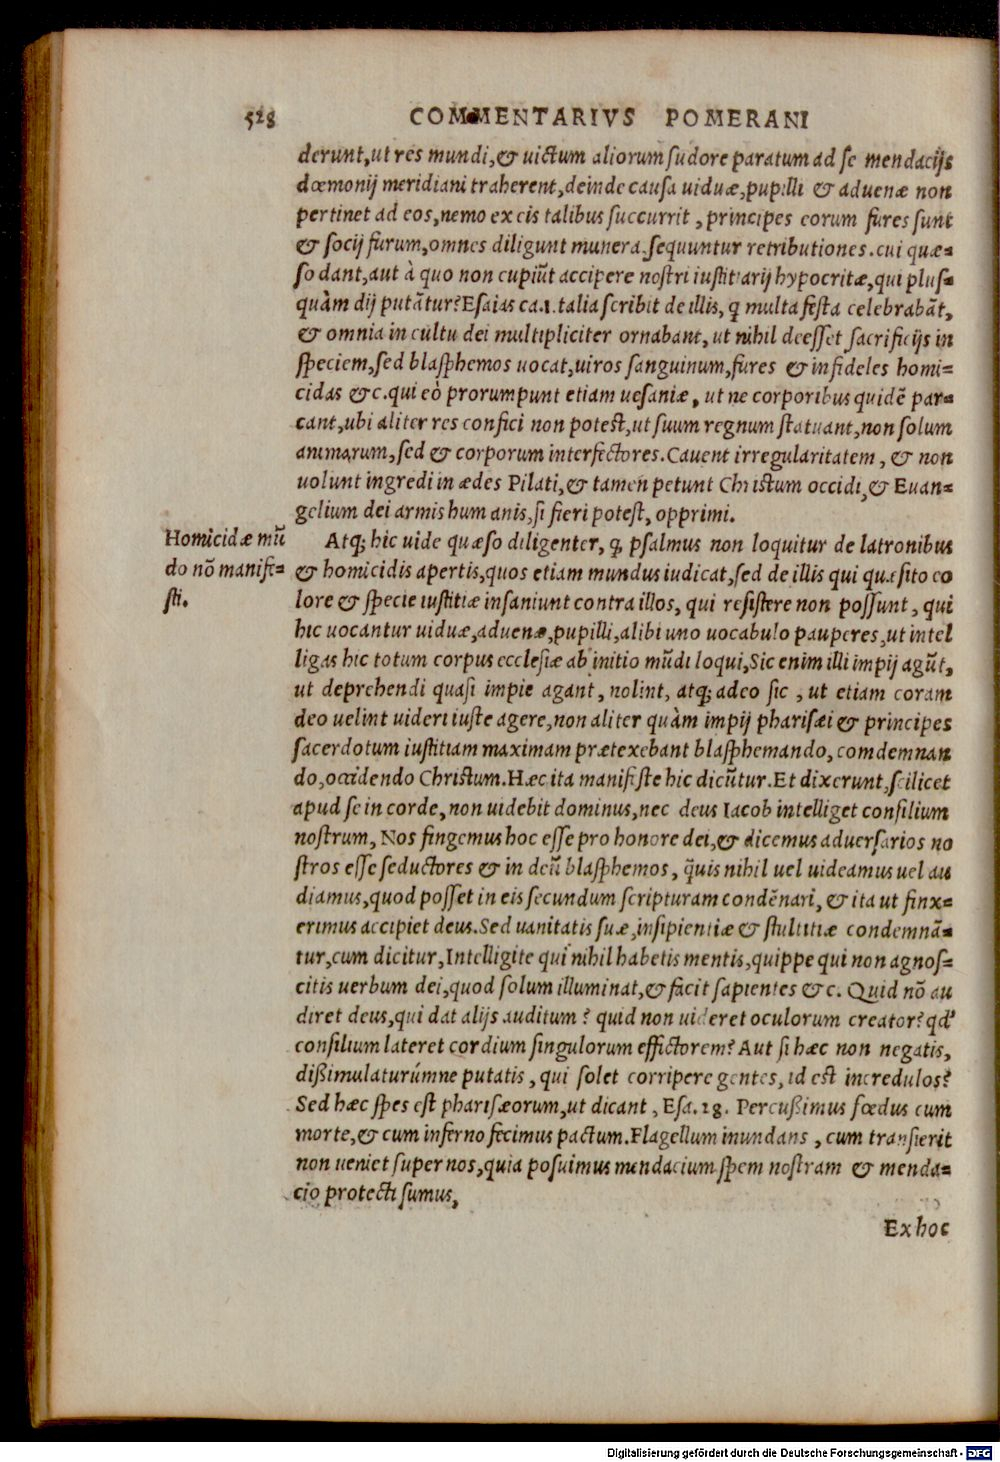 528 COMMENTARIVS POMERANI
derunt, ut res mundi, & uictum aliorum sudore paratum ad se mendacijs
dœmonij meridiani traherent, deinde causa uiduæ, pupilli & aduenæ non
pertinet ad eos, nemo ex eis talibus succurrit, principes eorum fures sunt
& socij furum, omnes diligunt munera, sequuntur retributiones. cui quæ=
so dant, aut à quo non cupiũt accipere nostri iustitiarij hypocritæ, qui plus=
quàm dij putãtur? Esaias ca. 1. talia scribit de illis, q̃ multa festa celebrabãt,
& omnia in cultu dei multipliciter ornabant, ut nihil deesset sacrificijs in
speciem, sed blasphemos uocat, uiros sanguinum, fures & infideles homi=
cidas &c. qui eò prorumpunt etiam uesaniæ, ut ne corporibus quidẽ par=
cant, ubi aliter res confici non potest, ut suum regnum statuant, non solum
animarum, sed & corporum interfectores. Cauent irregularitatem, & non
uolunt ingredi in ædes Pilati, & tamen petunt Christum occidi, & Euan=
gelium dei armis humanis, si fieri potest, opprimi.
Homicidæ mũ
do nõ manife=
sti.
Atq; hic uide quæso diligenter, q̃ psalmus non loquitur de latronibus
& homicidis apertis, quos etiam mundus iudicat, sed de illis qui quæsito co
lore & specie iustitiæ insaniunt contra illos, qui resistere non possunt, qui
hic uocantur uiduæ, aduenæ, pupilli, alibi uno uocabulo pauperes, ut intel
ligas hic totum corpus ecclesiæ ab initio mũdi loqui, Sic enim illi impij agũt,
ut deprehendi quasi impie agant, nolint, atq; adeo sic, ut etiam coram
deo uelint uideri iuste agere, non aliter quàm impij pharisæi & principes
sacerdotum iustitiam maximam prætexebant blasphemando, comdemnan
do, occidendo Christum. Hæc ita manifeste hic dicũtur. Et dixerunt, scilicet
apud se in corde, non uidebit dominus, nec deus Iacob intelliget consilium
nostrum, Nos fingemus hoc esse pro honore dei, & dicemus aduersarios no
stros esse seductores & in deũ blasphemos, q̃uis nihil uel uideamus uel au
diamus, quod posset in eis secundum scripturam condẽnari, & ita ut finx=
erimus accipiet deus. Sed uanitatis suæ, insipientiæ & stultitiæ condemnã=
tur, cum dicitur, Intelligite qui nihil habetis mentis, quippe qui non agnos=
citis uerbum dei, quod solum illuminat, & facit sapientes &c. Quid nõ au
diret deus, qui dat alijs auditum? quid non uideret oculorum creator? qd'
consilium lateret cordium singulorum effictorem? Aut si hæc non negatis,
dißimulaturúmne putatis, qui solet corripere gentes, id est incredulos?
Sed hæc spes est pharisæorum, ut dicant, Esa. 28. Percußimus fœdus cum
morte, & cum inferno fecimus pactum. Flagellum inundans, cum transierit
non ueniet super nos, quia posuimus mendacium spem nostram & menda=
cio protecti sumus,
Ex hoc
Digitalisierung gefördert durch die Deutsche Forschungsgemeinschaft - DFG